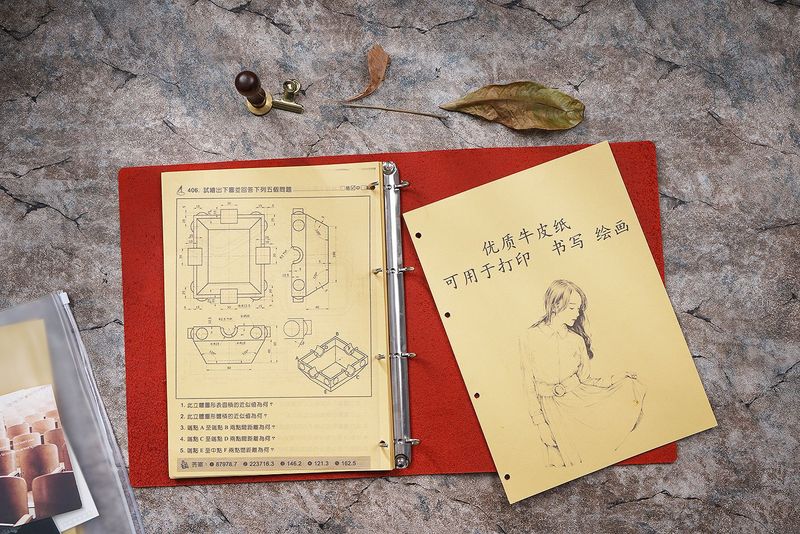 406. 試繪出下圖並回答下列五個問題
1. 此立體圖形表面積的近似值為何？
2. 此立體圖形體積的近似值為何？
3. 端點 A 至端點 B 兩點間距離為何？
4. 端點 C 至端點 D 兩點間距離為何？
5. 端點 E 至中點 F 兩點間距離為何？
答案：❶ 87978.7 ❷ 223716.3 ❸ 146.2 ❹ 121.3 ❺ 162.5
优质牛皮纸
可用于打印 书写 绘画